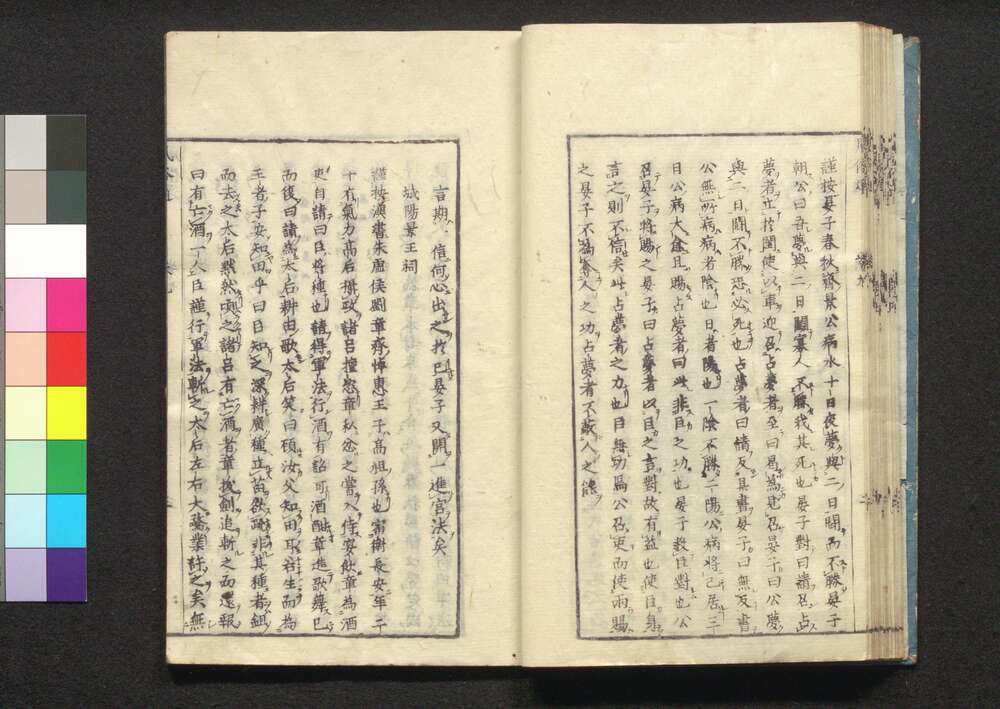 謹按晏子春秋齊景公病水十日夜夢與二日鬪而不勝晏子
朝公曰吾夢與二日鬪寡人不勝我其死也晏子對曰請召占
夢者立於閨使以車迎召占夢者至曰曷為見召晏子曰公夢
與二日鬪不勝恐必死也占夢者曰請反其書晏子曰無反書
公無所病病者陰也日者陽也一陰不勝二陽公病將已居三
日公病大愈且賜占夢者曰此非臣之功也晏子教臣對也公
召晏子將賜之晏子曰占夢者以臣之言對故有益也使臣身
言之則不信矣此占夢者之力也臣無功焉公召吏而使兩賜
之晏子不為奪人之功占夢者不蔽人之能
言期 信何心出之於已晏子又開一進官法矣
城陽景王祠
謹按漢書朱虛侯劉章齊悼惠王子高祖孫也宿衛長安年二
十有氣力高后攝政諸呂擅恣章私忿之嘗入侍宴飲章為酒
吏自請曰臣將種也請得軍法行酒有詔可酒酣章進歌舞已
而復曰請為太后耕田歌太后笑曰顧汝父知田耳若生而為
王者子安知田乎曰臣知之深耕廣種立苗欲疏非其種者鉏
而去之太后黙然頃之諸呂有亡酒者章拔劍追斬之而還報
曰有亡酒一人臣謹行軍法斬之太后左右大驚業許之矣無